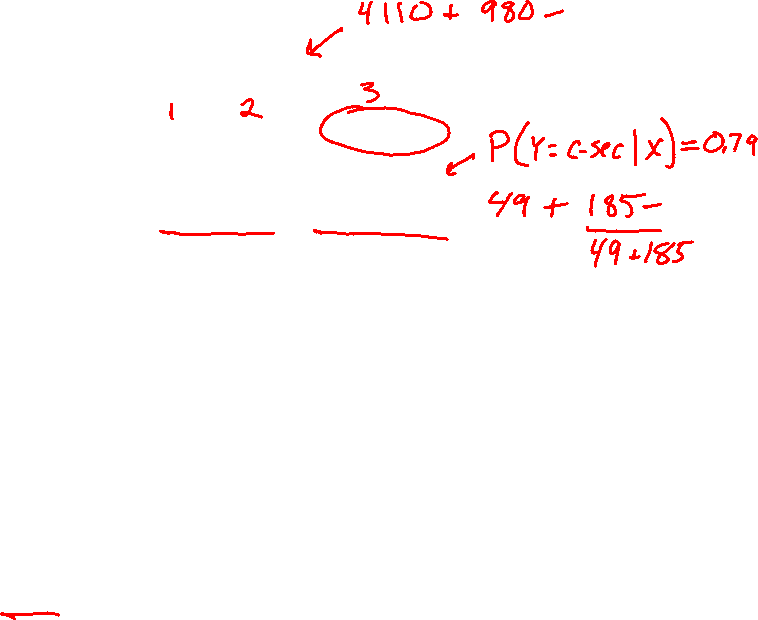 4110+ 980-
1 2 3
P(Y=c-sec|X)=0.79
49 + 185-
49+185